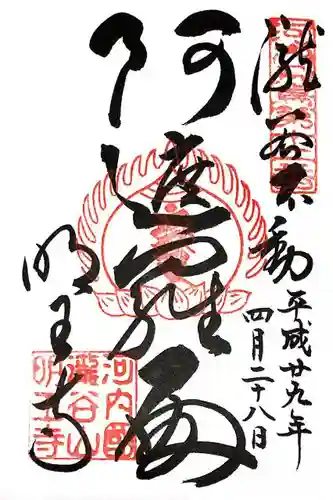 瀧谷不動
平成廿九年
四月二十八日
阿遮羅
明王寺
河内國
瀧谷山
明王寺